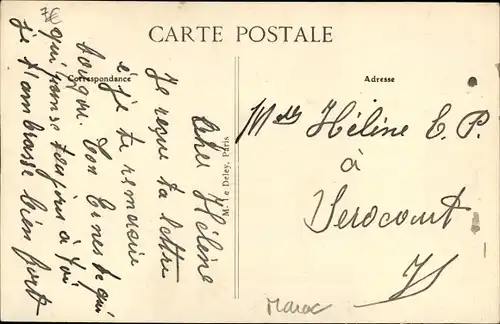 7€
CARTE POSTALE
Correspondance
Adresse
Chère Hélène
Je reçue ta lettre
et je te remercie
Ton Ernest qui
qui pense toujours à toi
je t'ambrasse bien fort
M. Le Deley, Paris
Melle Hélène E. P.
à
Serocourt
Maroc